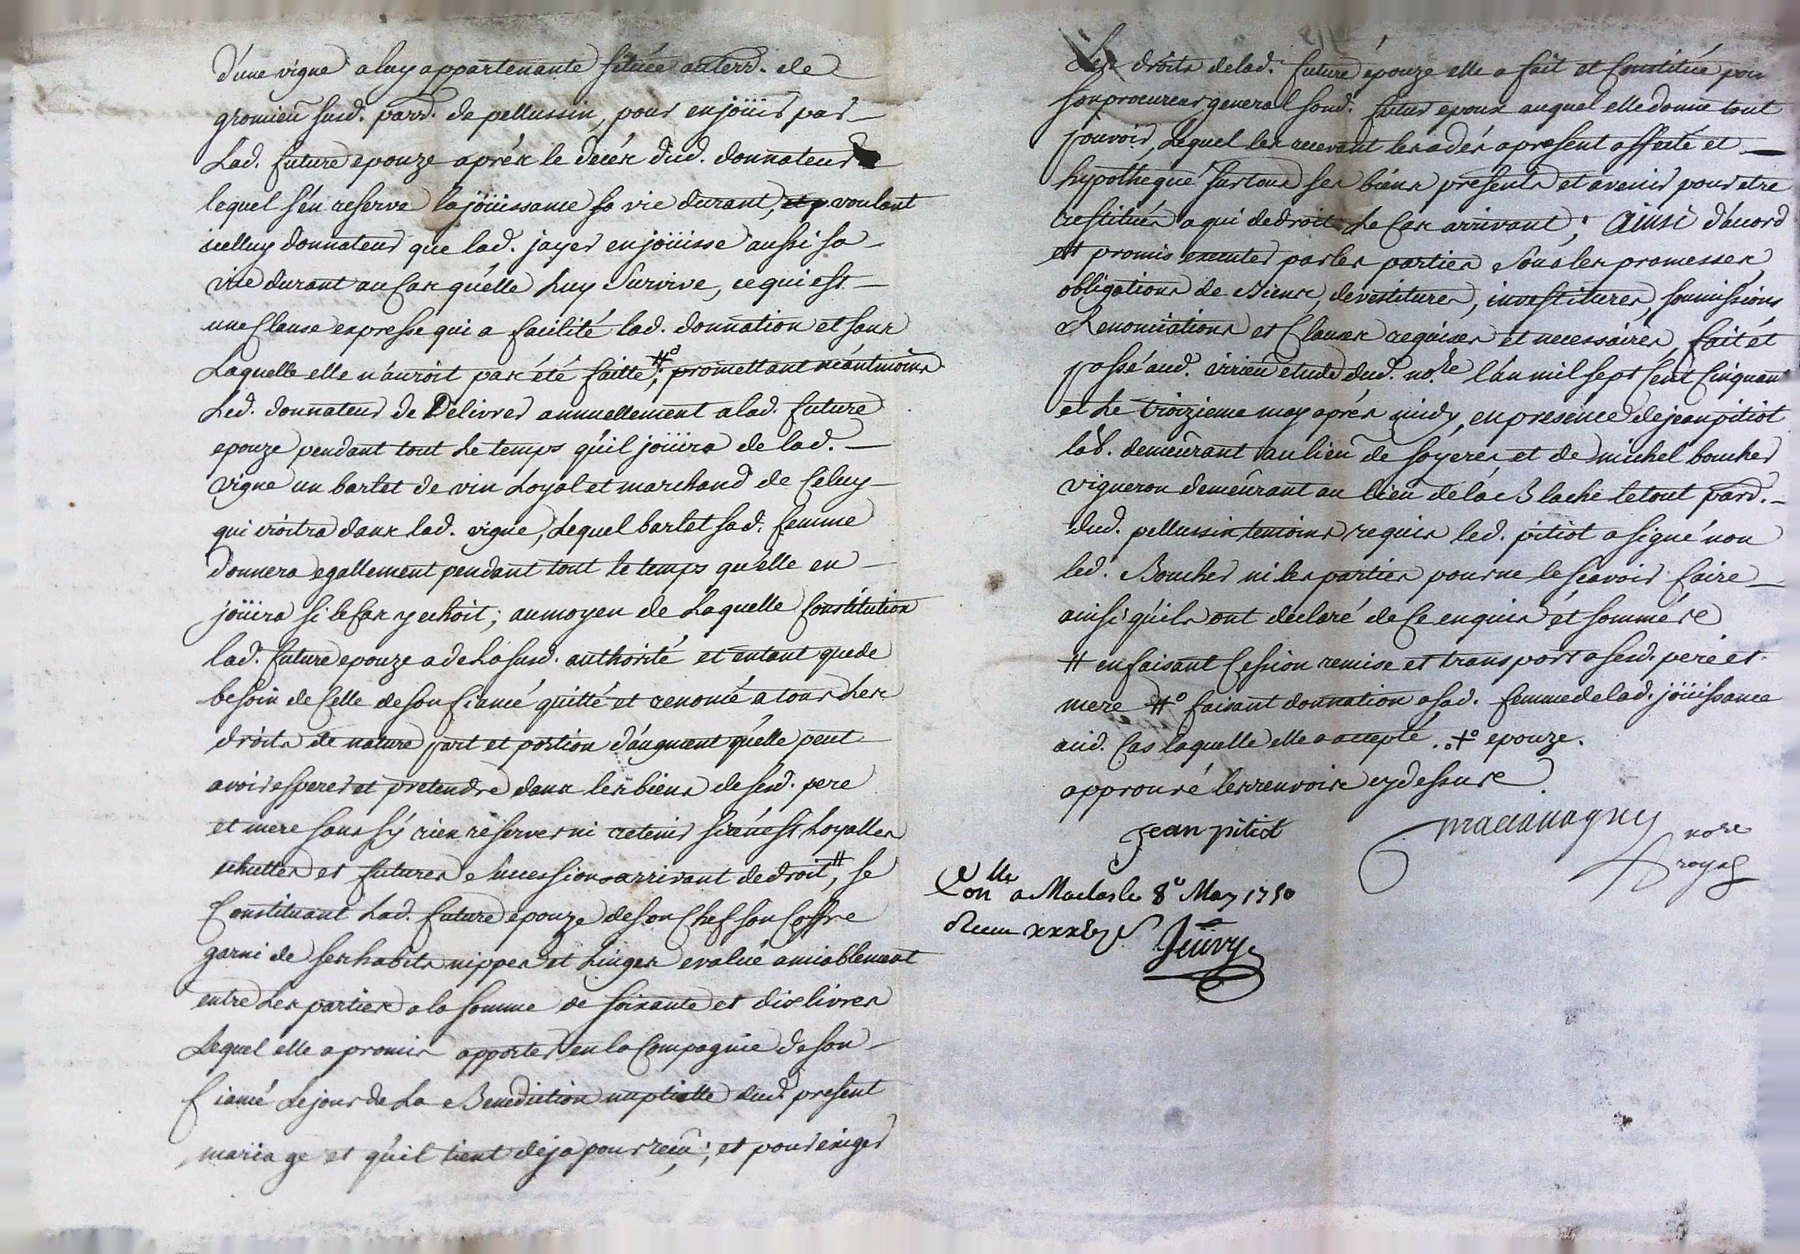 d'une vigne a luy appartenante située au terr. de
gromieu susd. parr. de pellussin, pour en joüir par
Lad. future epouze aprés le decés dud. donnateur
lequel s'en reserve la joüissance sa vie durant, voulant
icelluy donnateur que lad. jayer en joüisse aussi sa
vie durant au cas qu'elle Luy Survive, ce qui est
une Clause expresse qui a facilité lad. donnation et sans
Laquelle elle n'auroit pas été faitte #°, promettant néantmoins
Led. donnateur de Délivrer annuellement a lad. future
epouze pendant tout Le temps qu'il joüira de lad.
vigne un barlet de vin Loyal et marchand de Celuy
qui croitra dans lad. vigne, Lequel barlet sad. femme
donnera egallement pendant tout le temps qu'elle en
joüira si le Cas y echoit; au moyen de Laquelle Constitution
lad. future epouze a de La susd. authorité et entant que de
besoin de Celle de son fiancé quitté et renoncé a tous Les
droits de nature part et portion d'augment qu'elle peut
avoir esperer et pretendre dans les biens de sesd. pere
et mere sans s'y rien reserver ni retenir si n'est Loyalles
echuttes et futures Successions arrivant de droit #, se
Constituant Lad. future epouze de son Chef son Coffre
garni de ses habits nippes et Linges evalué amiablement
entre Les parties a la somme de soixante et dix livres
Lequel elle a promis apporter en la Compagnie de son
fiancé Le jour de La Benediction nuptialle dud. present
mariage et qu'il tient deja pour reçu; et pour exiger
Les droits de lad. future epouze elle a fait et Constitué pour
son procureur general sond. futur epoux auquel elle donne tout
pouvoir, Lequel les recevant les a dés a present affecté et
hypothequé sur tous ses biens presents et avenir pour etre
restitués a qui de droit Le Cas arrivant; Ainsi d'accord
et promis executer par les parties Sous les promesses,
obligations de Biens, devestitures, investitures, soumissions
Renonciations et Clauses requises et necessaires, fait et
passé aud. virieu etude dud. no.re l'an mil sept Cent Cinquante
et Le troizieme may aprés midy, en presence de jean pitiot
lab. demeurant au lieu de soyeres et de michel boucher
vigneron demeurant au lieu de la Blache le tout parr.
dud. pellussin temoins requis led. pitiot a signé non
led. Boucher ni les parties pour ne le sçavoir faire
ainsi qu'ils ont declaré de Ce enquis et sommés
# en faisant Cession remise et transport a sesd. pere et
mere #° faisant donnation a sad. femme de lad. joüissance
aud. Cas laquelle elle a accepté. +° epouze.
approuvé les renvois cy dessus
jean pitiot
no.re
royal
Con.lle a Maclas le 8.e May 1750